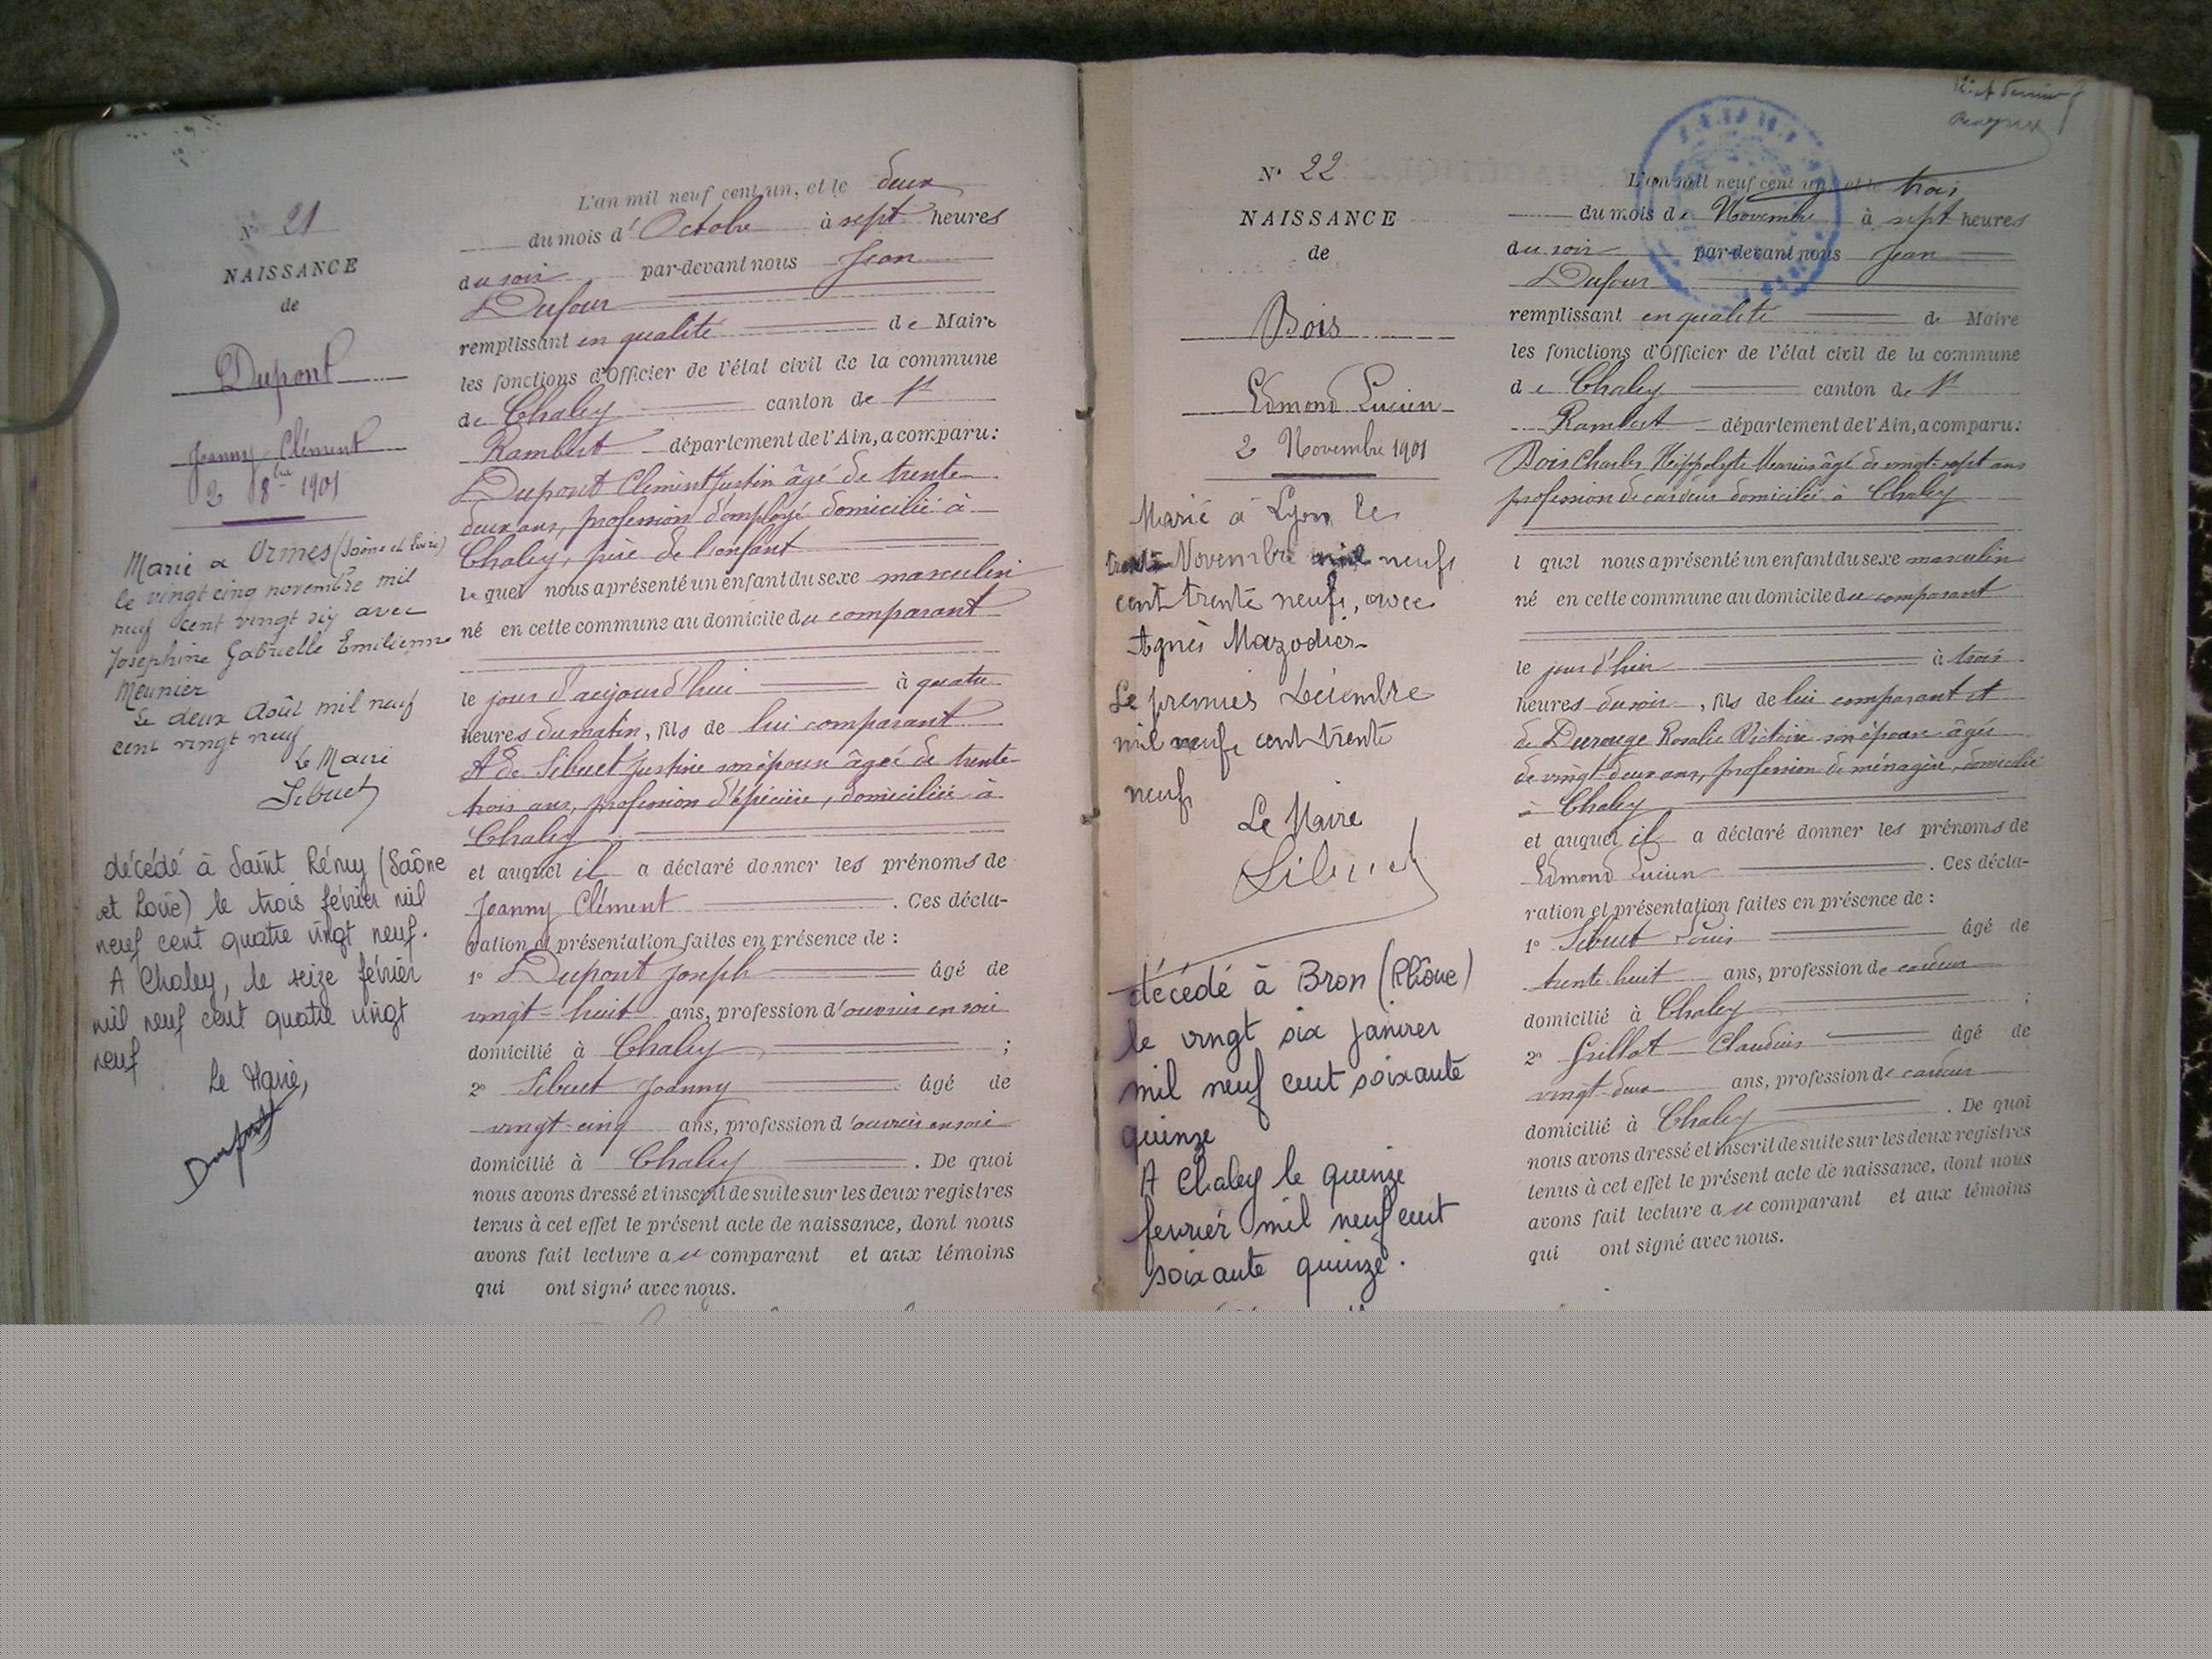 N° 21
NAISSANCE
de
Dupont
Joanny Clément
2 8bre 1901
Marié à Ormes (Saône et Loire)
le vingt cinq novembre mil
neuf cent vingt six avec
Joséphine Gabrielle Emilienne
Meunier
Le deux Août mil neuf
cent vingt neuf
Le Maire
Sibuet
décédé à Saint Rémy (Saône
et Loire) le trois février mil
neuf cent quatre vingt neuf.
A Chaley, le seize février
mil neuf cent quatre vingt
neuf
Le Maire,
L'an mil neuf cent un, et le deux
du mois d'Octobre à sept heures
du soir par-devant nous Jean
Dufour
remplissant en qualité de Maire
les fonctions d'Officier de l'état civil de la commune
de Chaley canton de St
Rambert département de l'Ain, a comparu:
Dupont Clément Justin âgé de trente
deux ans, profession d'employé domicilié à
Chaley, père de l'enfant
lequel nous a présenté un enfant du sexe masculin
né en cette commune au domicile du comparant
le jour d'aujourd'hui à quatre
heures du matin, fils de lui comparant
Et de Sibuet Justine son épouse âgée de trente
trois ans, profession d'épicière, domiciliée à
Chaley
et auquel il a déclaré donner les prénoms de
Joanny Clément . Ces décla-
ration et présentation faites en présence de :
1° Dupont Joseph âgé de
vingt-huit ans, profession d'ouvrier en soie
domicilié à Chaley ;
2° Sibuet Joanny âgé de
vingt-cinq ans, profession d'ouvrier en soie
domicilié à Chaley . De quoi
nous avons dressé et inscrit de suite sur les deux registres
tenus à cet effet le présent acte de naissance, dont nous
avons fait lecture au comparant et aux témoins
qui ont signé avec nous.
N° 22
NAISSANCE
de
Bois
Edmond Lucien
2 Novembre 1901
Marié à Lyon le
trente Novembre mil neuf
cent trente neuf, avec
Agnès Mazodier
Le premier Décembre
mil neuf cent trente
neuf
Le Maire
Sibuet
décédé à Bron (Rhône)
le vingt six janvier
mil neuf cent soixante
quinze
A Chaley le quinze
février mil neuf cent
soixante quinze.
L'an mil neuf cent un, et le trois
du mois de Novembre à sept heures
du soir par-devant nous Jean
Dufour
remplissant en qualité de Maire
les fonctions d'Officier de l'état civil de la commune
de Chaley canton de St
Rambert département de l'Ain, a comparu:
Bois Charles Hippolyte Marius âgé de vingt-sept ans
profession de cardeur domicilié à Chaley
lequel nous a présenté un enfant du sexe masculin
né en cette commune au domicile du comparant
le jour d'hier à trois
heures du soir, fils de lui comparant et
de Durouge Rosalie Victoire son épouse âgée
de vingt-deux ans, profession de ménagère, domiciliée
à Chaley
et auquel il a déclaré donner les prénoms de
Edmond Lucien . Ces décla-
ration et présentation faites en présence de :
1° Sibuet Louis âgé de
trente huit ans, profession de cardeur
domicilié à Chaley ;
2° Grillot Claudius âgé de
vingt-deux ans, profession de cardeur
domicilié à Chaley . De quoi
nous avons dressé et inscrit de suite sur les deux registres
tenus à cet effet le présent acte de naissance, dont nous
avons fait lecture au comparant et aux témoins
qui ont signé avec nous.